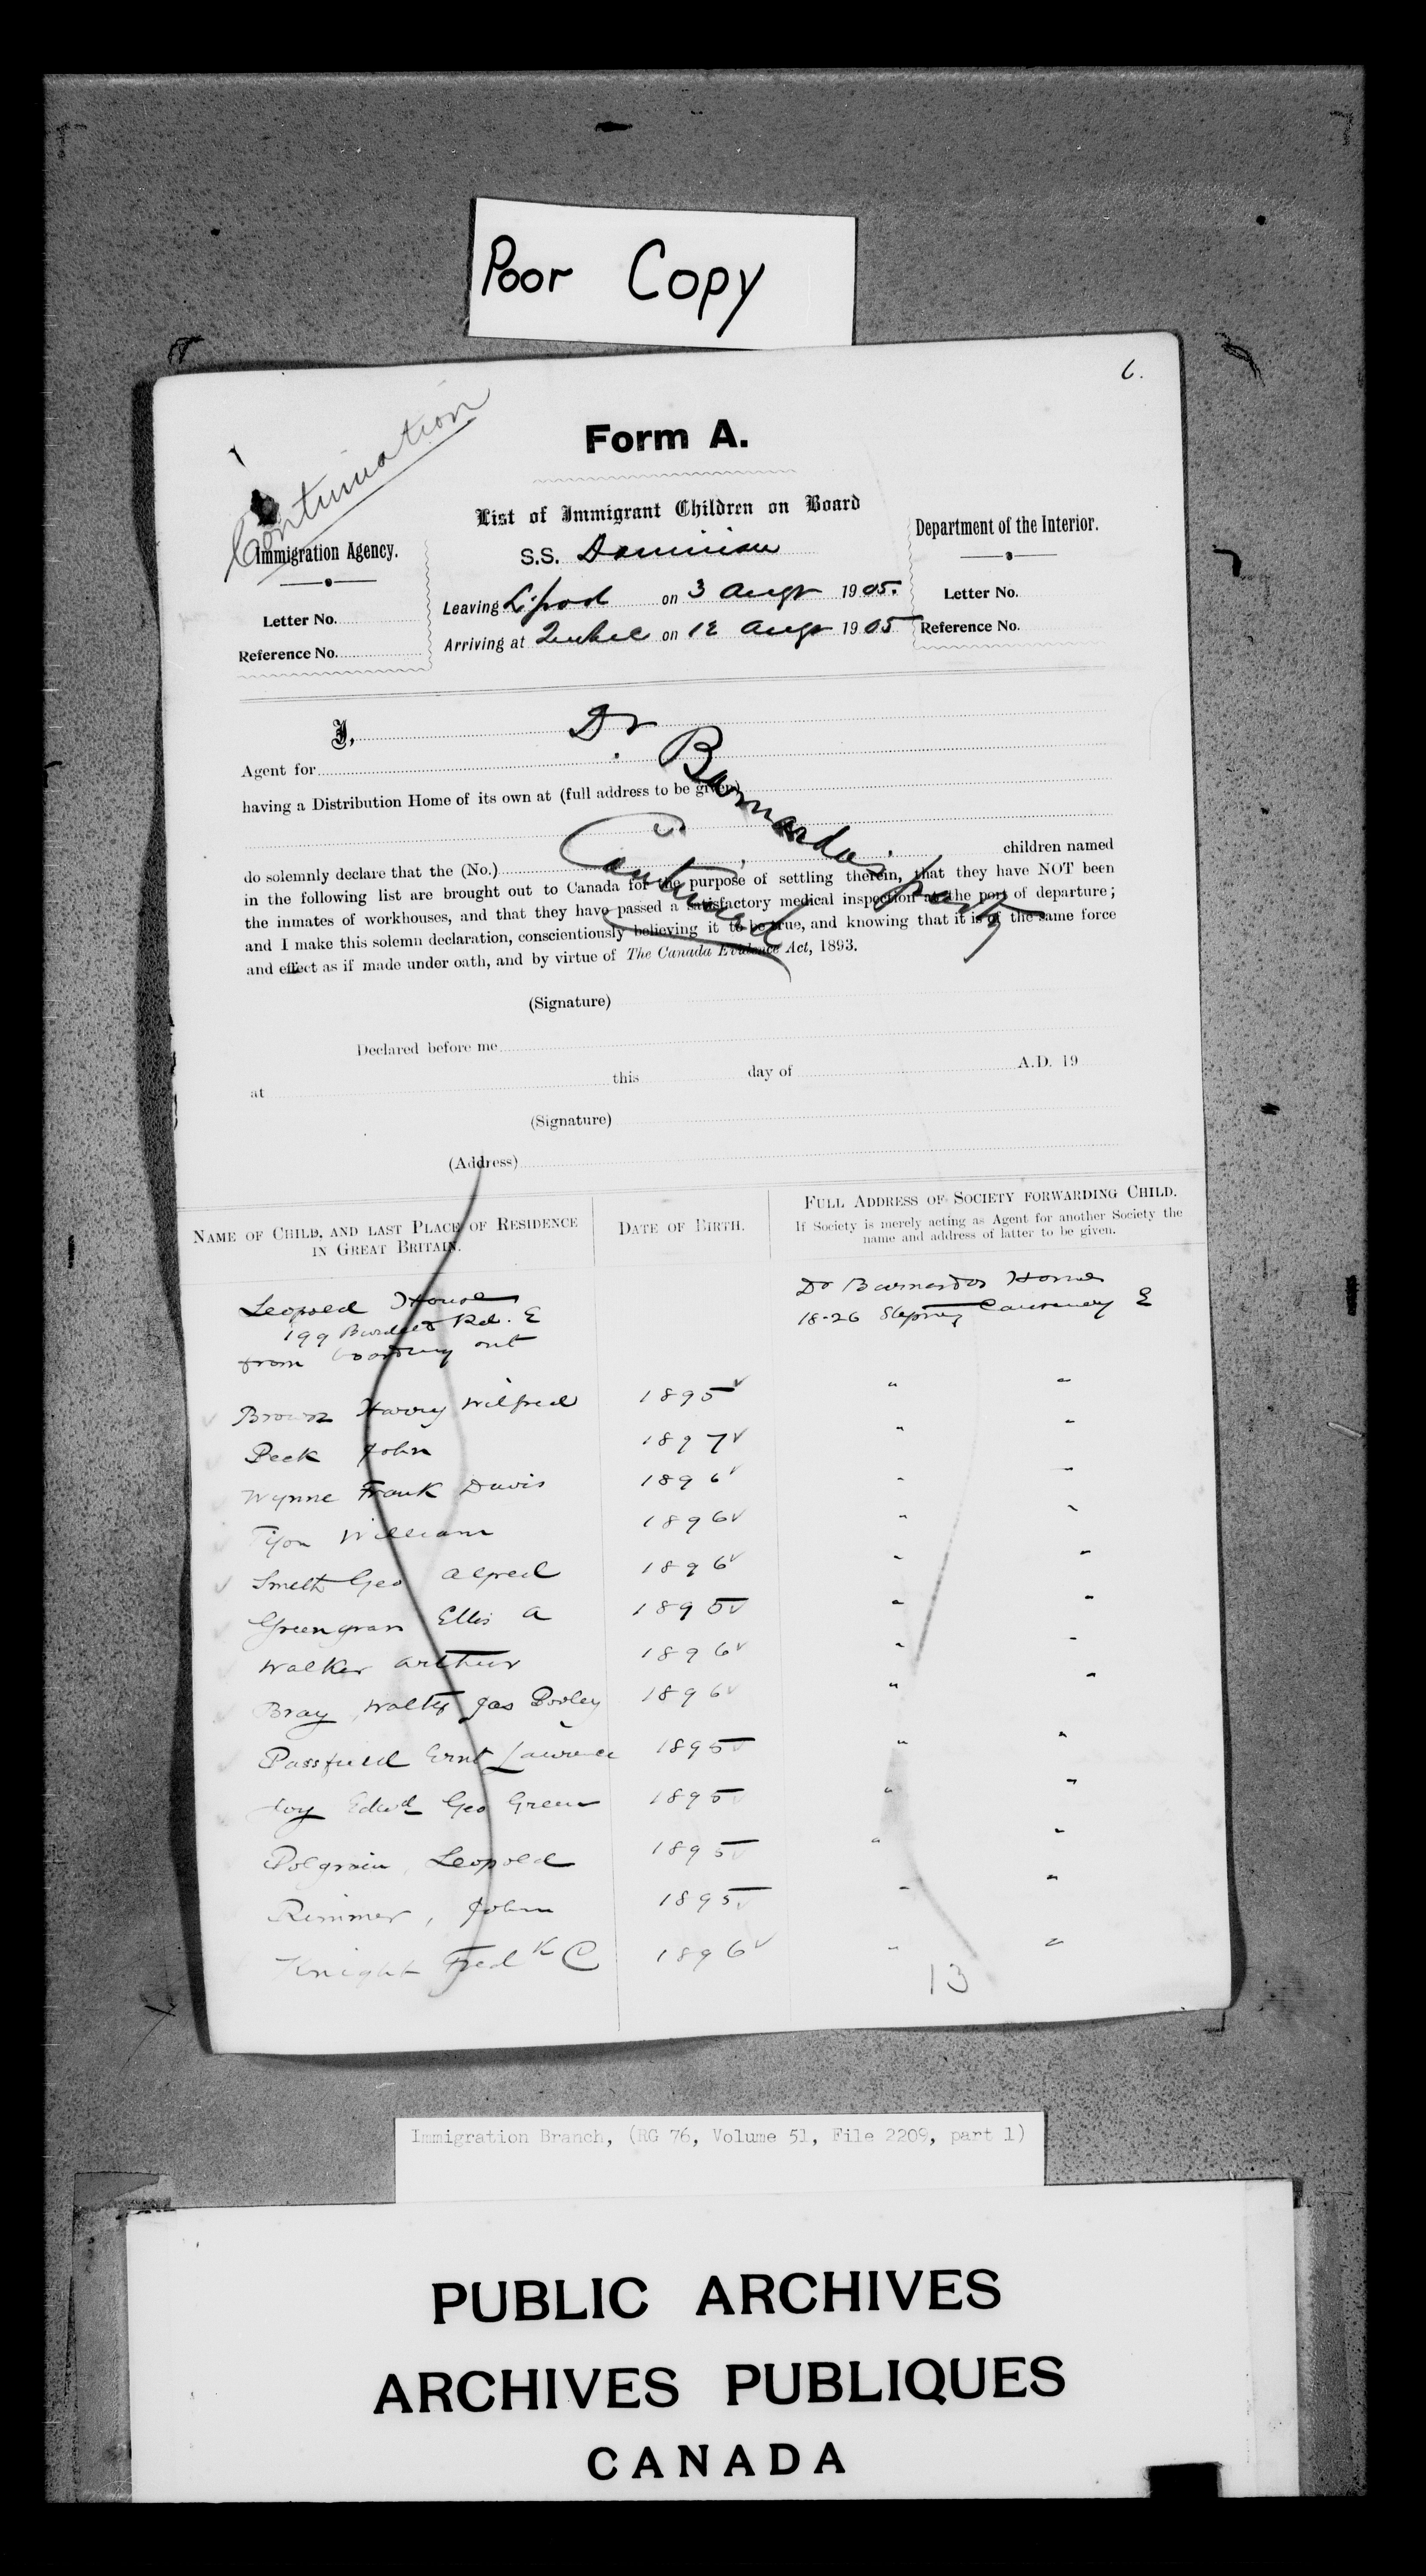 Poor Copy
6.
Continuation
Form A.
List of Immigrant Children on Board
S.S. Dominion
Leaving L'pool on 3 Augt 1905.
Arriving at Quebec on 12 Augt 1905
Immigration Agency.
Letter No.
Reference No.
Department of the Interior.
Letter No.
Reference No.
I,
Dr Barnardo's party
Continued
Agent for
having a Distribution Home of its own at (full address to be given)
do solemnly declare that the (No.) children named
in the following list are brought out to Canada for the purpose of settling therein, that they have NOT been
the inmates of workhouses, and that they have passed a satisfactory medical inspection at the port of departure;
and I make this solemn declaration, conscientiously believing it to be true, and knowing that it is of the same force
and effect as if made under oath, and by virtue of The Canada Evidence Act, 1893.
(Signature)
Declared before me
at this day of A.D. 19
(Signature)
(Address)
NAME OF CHILD, AND LAST PLACE OF RESIDENCE
IN GREAT BRITAIN.
DATE OF BIRTH.
FULL ADDRESS OF SOCIETY FORWARDING CHILD.
If Society is merely acting as Agent for another Society the
name and address of latter to be given.
Leopold House
199 Burdett Rd. E
from boarding out
Dr Barnardos Homes
18-26 Stepney Causeway E
Brown Harry Wilfred 1895 " "
Peck John 1897 " "
Wynne Frank Davis 1896 " "
William 1896 " "
Smith Geo Alfred 1896 " "
Greengrass Ellis A 1895 " "
Walker Arthur 1896 " "
Bray, Walter Jas Pooley 1896 " "
Passfield Ernt Lawrence 1895 " "
Edwd Geo Green 1895 " "
Polgrain, Leopold 1895 " "
Rimmer, John 1895 " "
Knight Fredk C 1896 " "
13
Immigration Branch, (RG 76, Volume 51, File 2209, part 1)
PUBLIC ARCHIVES
ARCHIVES PUBLIQUES
CANADA